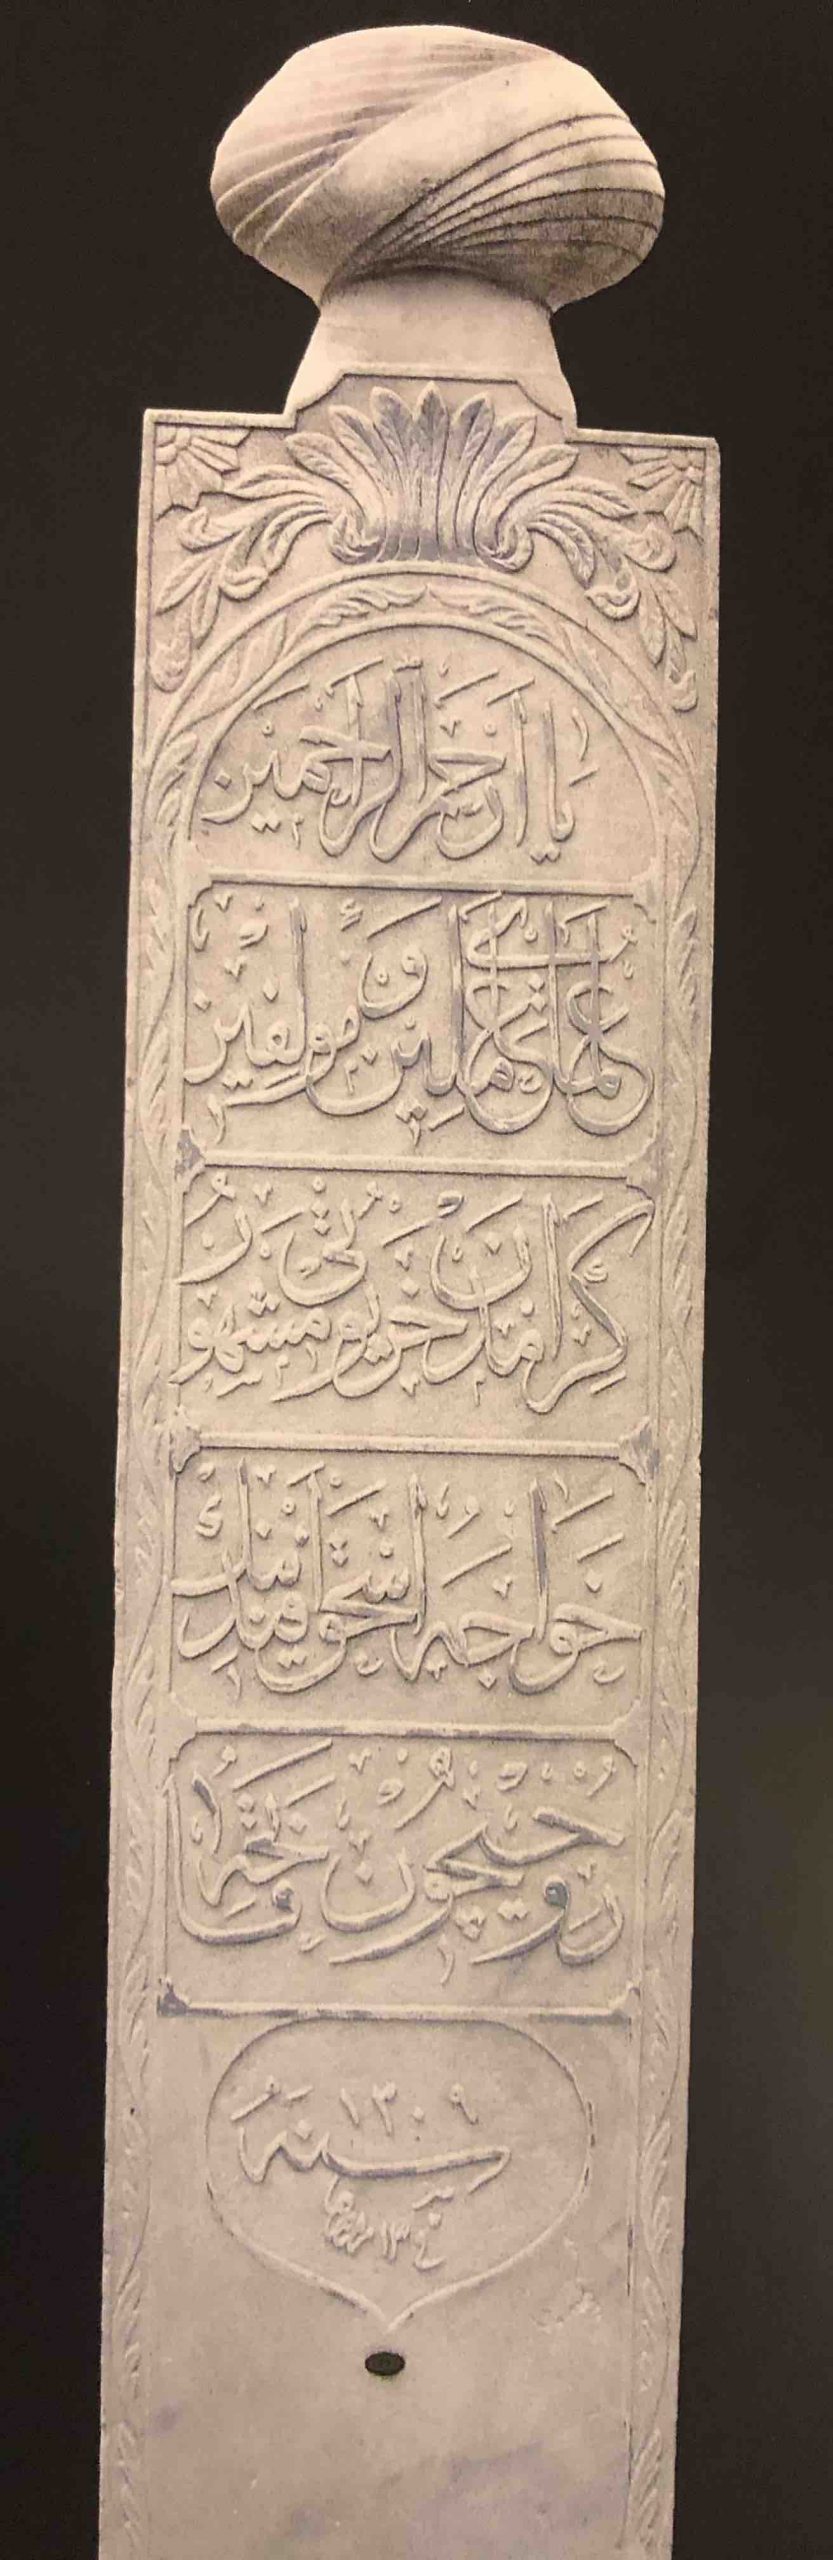 يا ارحم الراحمين
علمای عاملین و مؤلفین
كرامدن خرپوتلی مشهور
خواجه اسحق افندینك
روحیچون فاتحه
١٣٠٩
سنه